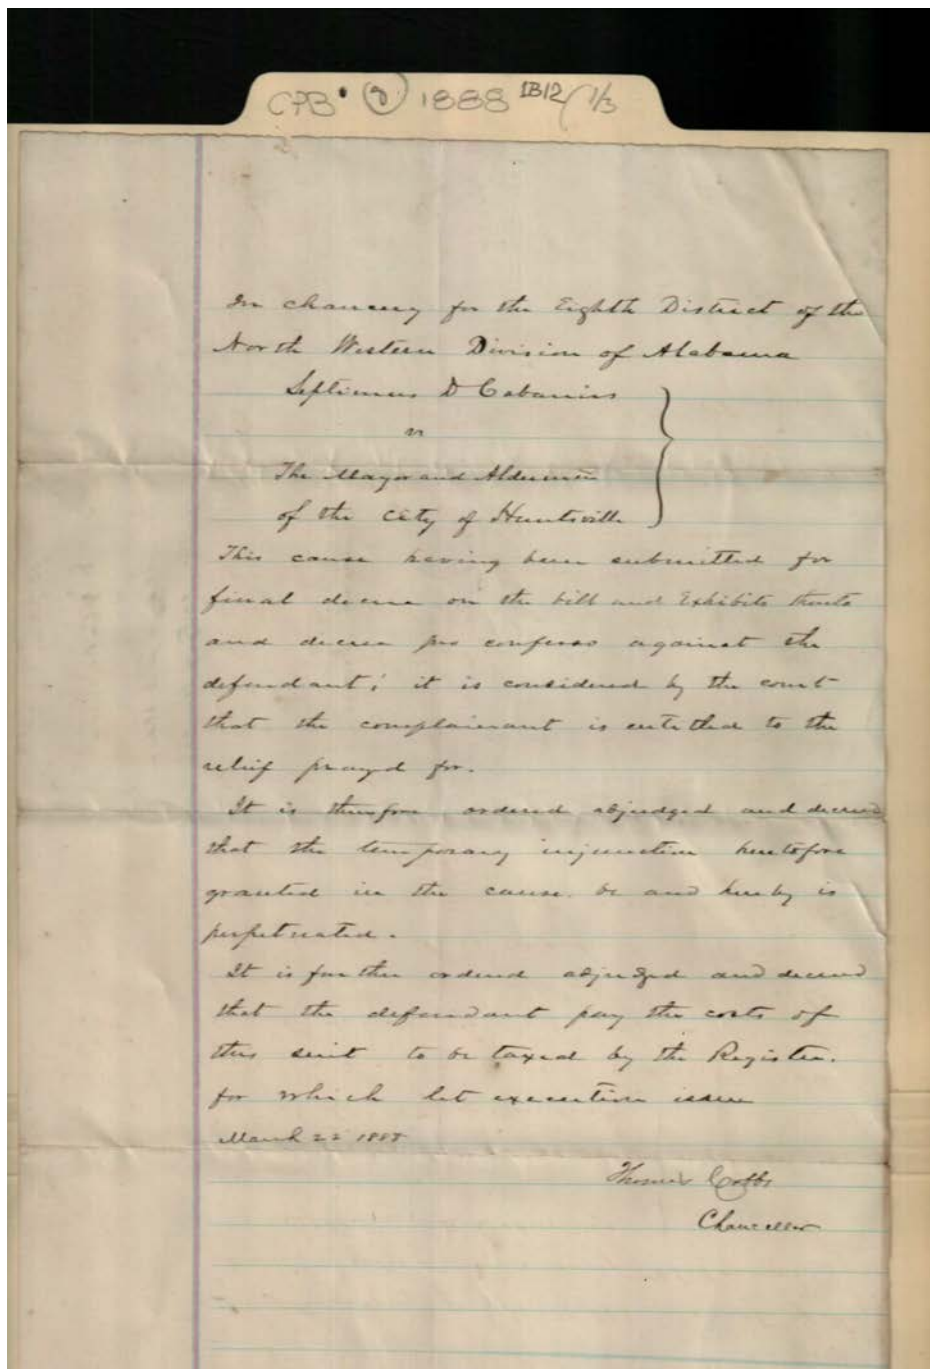 CPB • 8 1888 IB12 1/3
In chancery for the Eighth District of the
North Western Division of Alabama
Septimus D Cabaniss
vs
The Mayor and Aldermen
of the City of Huntsville
This cause having been submitted for
final decree on the bill and Exhibits thereto
and decree pro confesso against the
defendant; it is considered by the court
that the complainant is entitled to the
relief prayed for.
It is therefore ordered adjudged and decreed
that the temporary injunction heretofore
granted in the cause. be and hereby is
perpetuated.
It is further ordered adjudged and decreed
that the defendant pay the costs of
this suit to be taxed by the Register.
for which let execution issue
March 22 1888
Thomas Cobbs
Chancellor